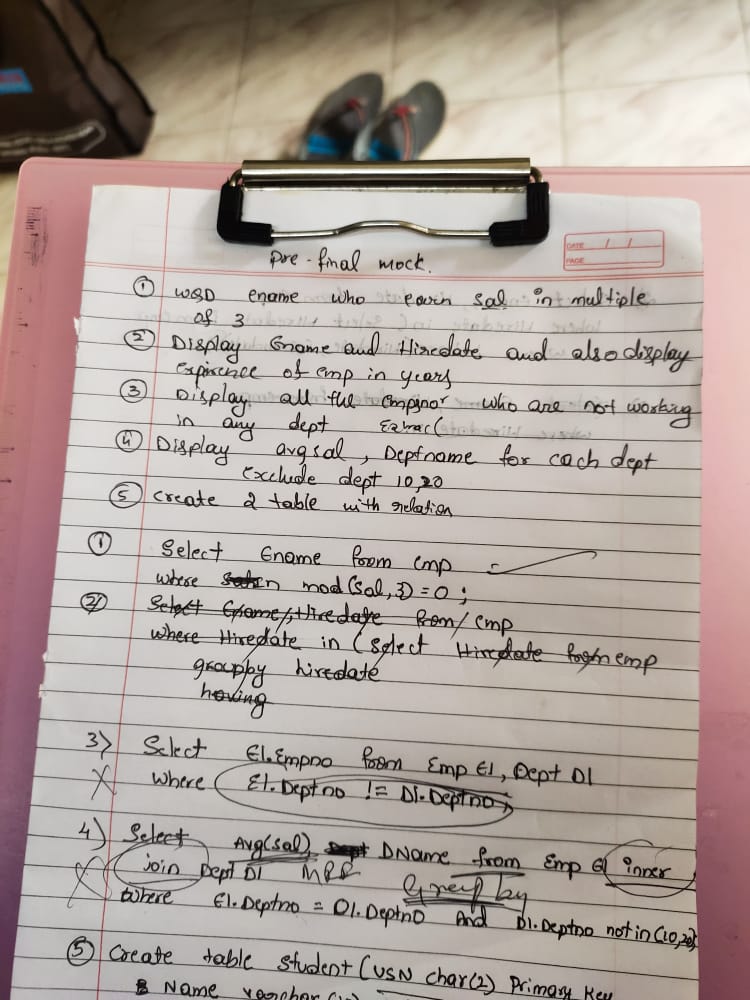 DATE / /
PAGE
Pre-final mock.
① WQD ename who earn sal in multiple
of 3
② Display Ename and Hiredate and also display
Expirence of emp in years
③ Display all the empsno who are not working
in any dept
④ Display avgsal, Deptname for each dept
Exclude dept 10,20
⑤ Create 2 table with relation
① Select Ename from emp
where mod(sal,3)=0;
② Select Ename, Hiredate from emp
where Hiredate in (select Hiredate from emp
groupby hiredate
having
3) Select E1.Empno from Emp E1, Dept D1
where E1.Deptno != D1.Deptno;
4) Select Avg(sal), DName from Emp E1 inner
join Dept D1 Group by
where E1.Deptno = D1.Deptno And D1.Deptno not in (10,20)
⑤ Create table student (USN char(2) Primary Key
Name varchar